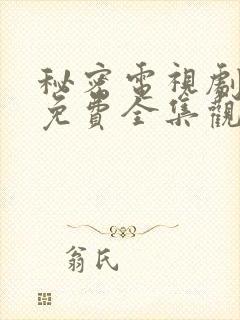 秘密電視劇
免費全集觀
翁氏